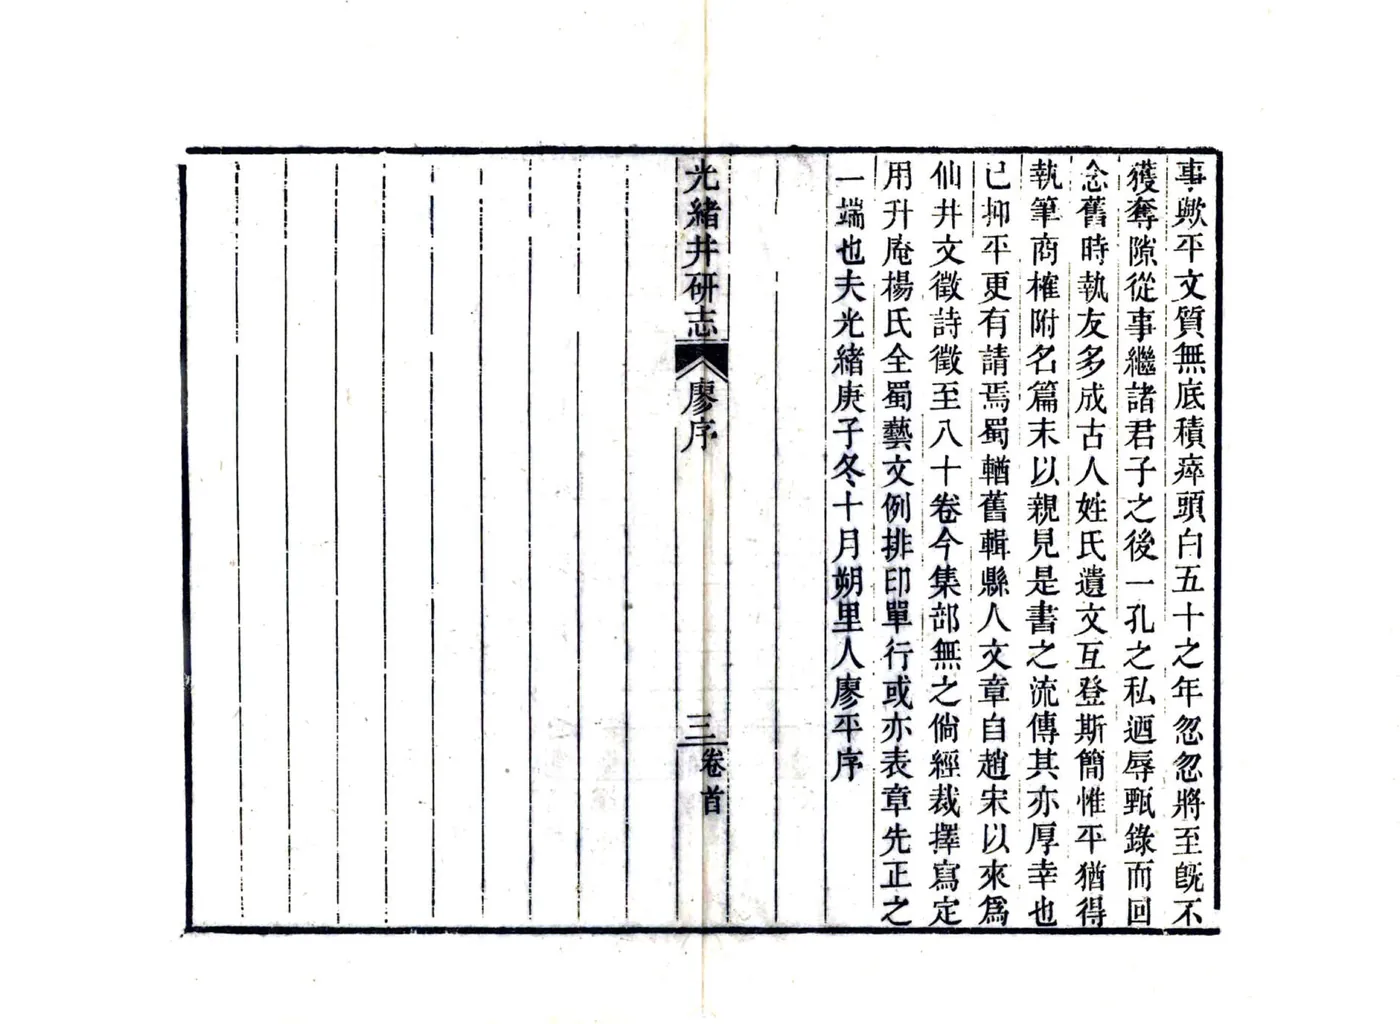 事歟平文質無底積瘁頭白五十之年忽忽將至旣不
獲奪隙從事繼諸君子之後一孔之私迺辱甄錄而回
念舊時執友多成古人姓氏遺文互登斯簡惟平猶得
執筆商榷附名篇末以親見是書之流傳其亦厚幸也
已抑平更有請焉蜀輶舊輯縣人文章自趙宋以來爲
仙井文徵詩徵至八十卷今集部無之倘經裁擇寫定
用升庵楊氏全蜀藝文例排印單行或亦表章先正之
一端也夫光緒庚子冬十月朔里人廖平序
光緒井研志
廖序
三
卷首